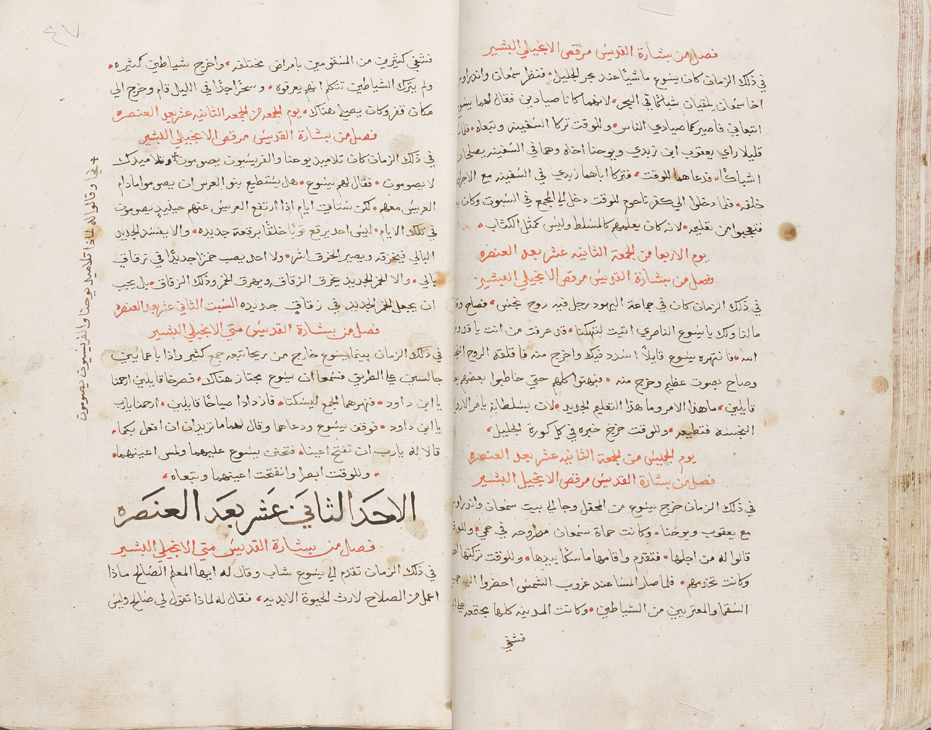 فصل من بشارة القديس مرقص الانجيلي البشير
في ذلك الزمان كان يسوع ماشيًا عند بحر الجليل فنظر سمعان واندراوس
اخا سمعان يلقيان شباكًا في البحر لانهما كانا صيادين فقال لهما يسوع
اتبعاني فاصيركما صيادي الناس وللوقت تركا السفينه وتبعاه
قليلا راي يعقوب ابن زبدي ويوحنا اخاه وهما في السفينه يصلحان
اشباكًا فدعاهما للوقت فتركا اباهما زبدي في السفينه مع الاجرا
خلفه فلما دخلوا الي كفرناحوم للوقت دخل الي المجمع في السبوت وكان
فتعجبوا من تعليمه لانه كان يعلمهم كالمسلط وليس كمثل الكتّاب
يوم الاربعا من الجمعة الثانيه عشر بعد العنصره
فصل من بشارة القديس مرقص الانجيلي البشير
في ذلك الزمان كان في جماعة اليهود رجل فيه روح نجس فصاح
مالنا ولك يا يسوع الناصري اتيت لتهلكنا قد عرفت من انت يا قدوس
الله فانتهره يسوع قايلاً اسدد فيك واخرج منه فاقلقه الروح
وصاح بصوت عظيم وخرج منه فبهتوا كلهم حتي خاطبوا بعضهم
قايلين ما هذا الامر وما هذا التعليم الجديد لان بسلطانه يامر الارواح
النجسه فتطيعه وللوقت خرج خبره في كل كورة الجليل
يوم الخميس من الجمعة الثانيه عشر بعد العنصره
فصل من بشارة القديس مرقص الانجيل البشير
في ذلك الزمان خرج يسوع من المحفل وجا الي بيت سمعان واندراوس
مع يعقوب ويوحنا وكانت حماة سمعان مطروحه في حمي وللوقت
قالوا له من اجلها فتقدم واقامها ماسكًا بيدها وللوقت تركتها
وكانت تخدمهم فلما صار المسا عند غروب الشمس احضروا اليه
السقما والمعتريين من الشياطين وكانت المدينه كلها مجتمعه
فشفي
٤٧
فشفي كثيرين من المسقومين بامراض مختلفه واخرج شياطين كثيره
ولم يترك الشياطين تتكلم انهم يعرفونه وسحرًا جدًا في الليل قام وخرج الي
مكان قفر وكان يصلي هناك يوم الجمعه من الجمعه الثانيه عشر بعد العنصره
فصل من بشارة القديس مرقص الانجيلي البشير
في ذلك الزمان كان تلاميد يوحنا والفريسيون يصومون وتلاميدك
لا يصومون فقال لهم يسوع هل يستطيع بنو العرس ان يصوموا مادام
العريس معهم لكن ستاتي ايام اذا ارتفع العريس عنهم حينيد يصومون
في تلك الايام ليس احد يرقع ثوبًا خلقًا برقعة جديده والا يفسد الجديد
البالي فيخرقه ويصير الخرق اشر ولا احد يصب خمرًا جديدًا في زقاق
بالي والا الخمر الجديد يخرق الزقاق ويهرق الخمر وذلك الزقاق بل يجب
ان يجعل الخمر الجديد في زقاق جديده السبت الثاني عشر بعد العنصره
فصل من بشارة القديس متي الانجيلي البشير
في ذلك الزمان بينما يسوع خارج من ريحا تبعه جمع كثير واذا باعمايين
جالسين علي الطريق فسمعا ان يسوع يجتاز هناك فصرخا قايلين ارحمنا
يا ابن داود فنهرهما الجمع ليسكتا فازدادا صياحًا قايلين ارحمنا يارب
يا ابن داود فوقف يسوع ودعاهما وقال لهما ما تريدان ان افعل بكما
قالا له يارب ان تفتح اعيننا فتحنن يسوع عليهما ولمس اعينهما
وللوقت ابصرا وانفتحت اعينهما وتبعاه
الاحد الثاني عشر بعد العنصره
فصل من بشارة القديس متي الانجيلي البشير
في ذلك الزمان تقدم الي يسوع شاب وقال له ايها المعلم الصالح ماذا
اعمل من الصلاح لارث الحيوة الابديه فقال له لماذا تقول لي صالح وليس
فجا وقالوا له لماذا تلاميد يوحنا والفريسيون يصومون